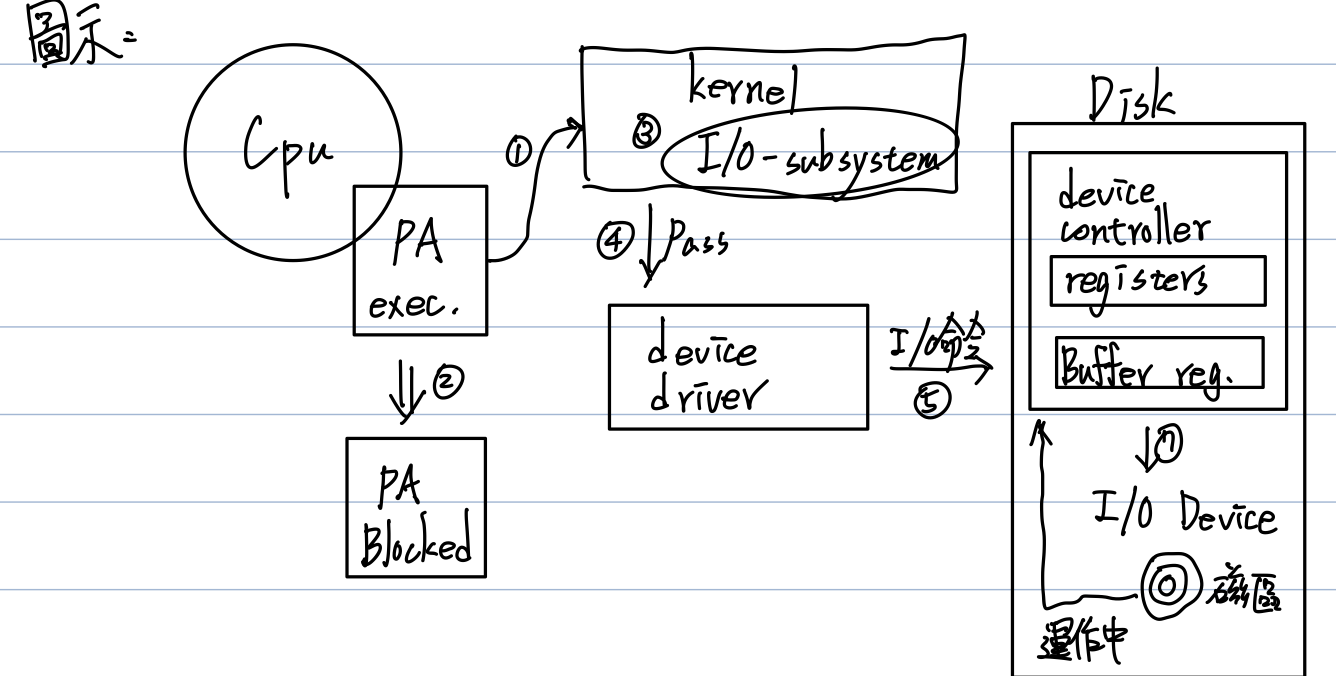 圖示:
Cpu
PA
exec.
①
②
PA
Blocked
kernel
③
I/O-subsystem
④ Pass
device
driver
I/O命令
⑤
Disk
device
controller
registers
Buffer reg.
⑦
I/O Device
磁區
運作中